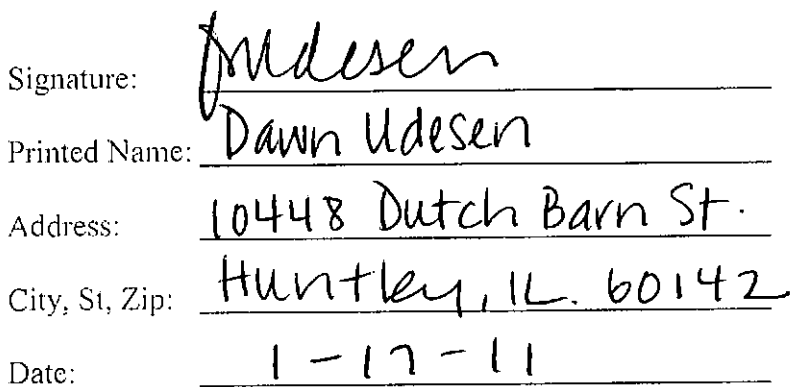 Signature: Udesen
Printed Name: Dawn Udesen
Address: 10448 Dutch Barn St.
City, St, Zip: Huntley, IL. 60142
Date: 1-17-11